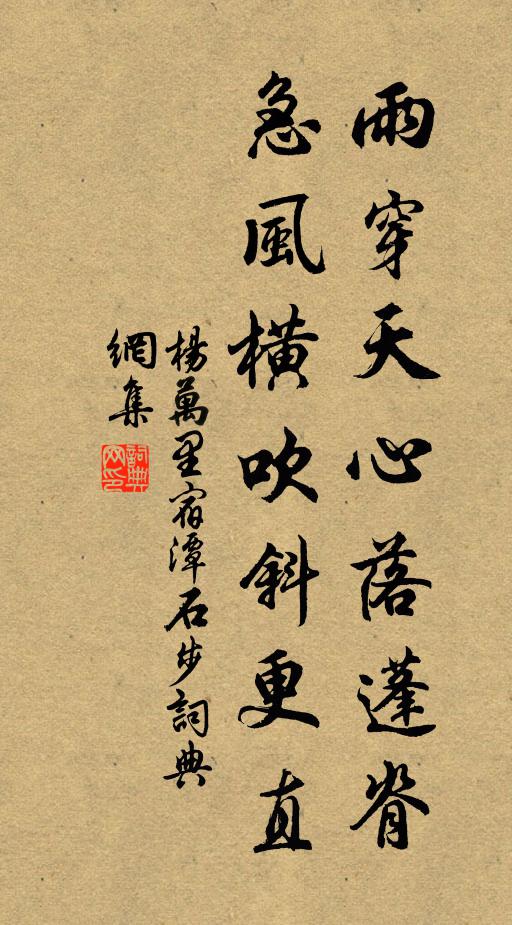 雨穿天心落蓬脊
急風橫吹斜更直
楊萬里宿潭石步詞典
網集
詞典
网印